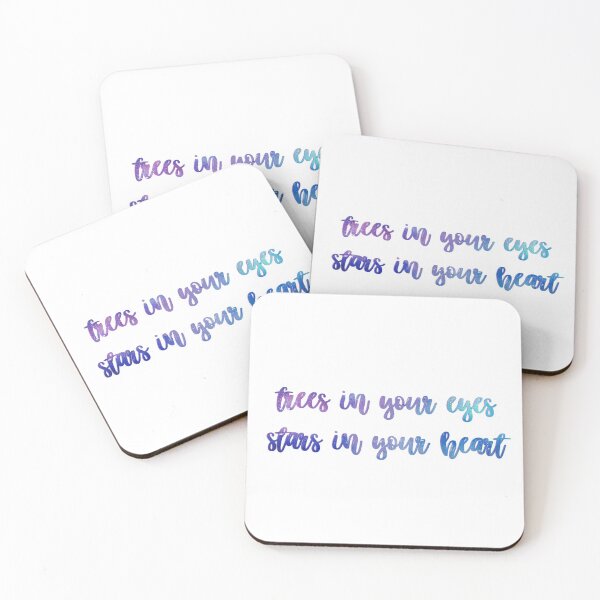 trees in your
trees in your eyes
stars in your heart
trees in your eyes
stars in your heart
trees in your eyes
stars in your heart